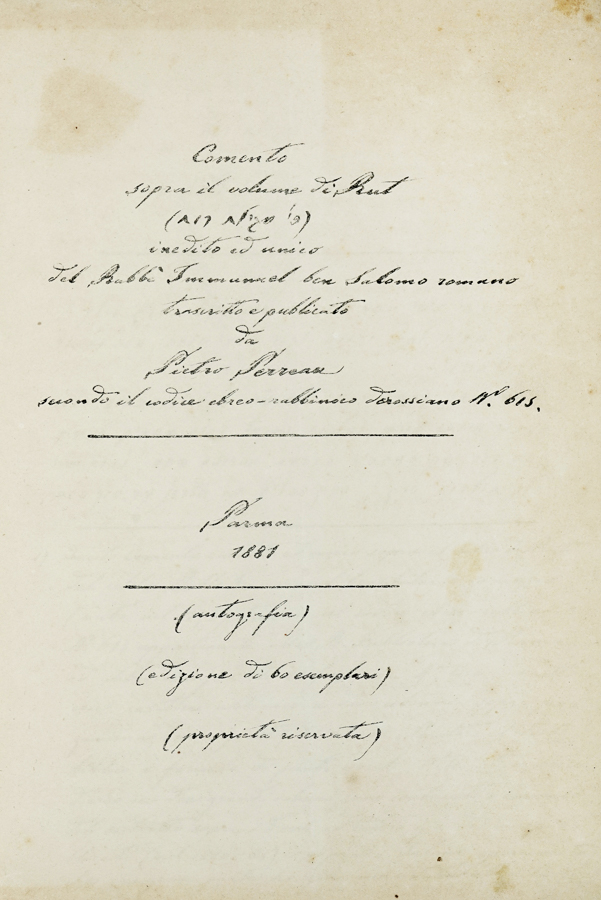 Comento
sopra il volume di Rut
(פי׳ מגלת רות)
inedito ed unico
del Rabbi Immanuel ben Salomo romano
trascritto e publicato
da
Pietro Perreau
secondo il codice ebreo-rabbinico derossiano N.º 615.
Parma
1881
(autografia)
(edizione di 60 esemplari)
(proprietà riservata)